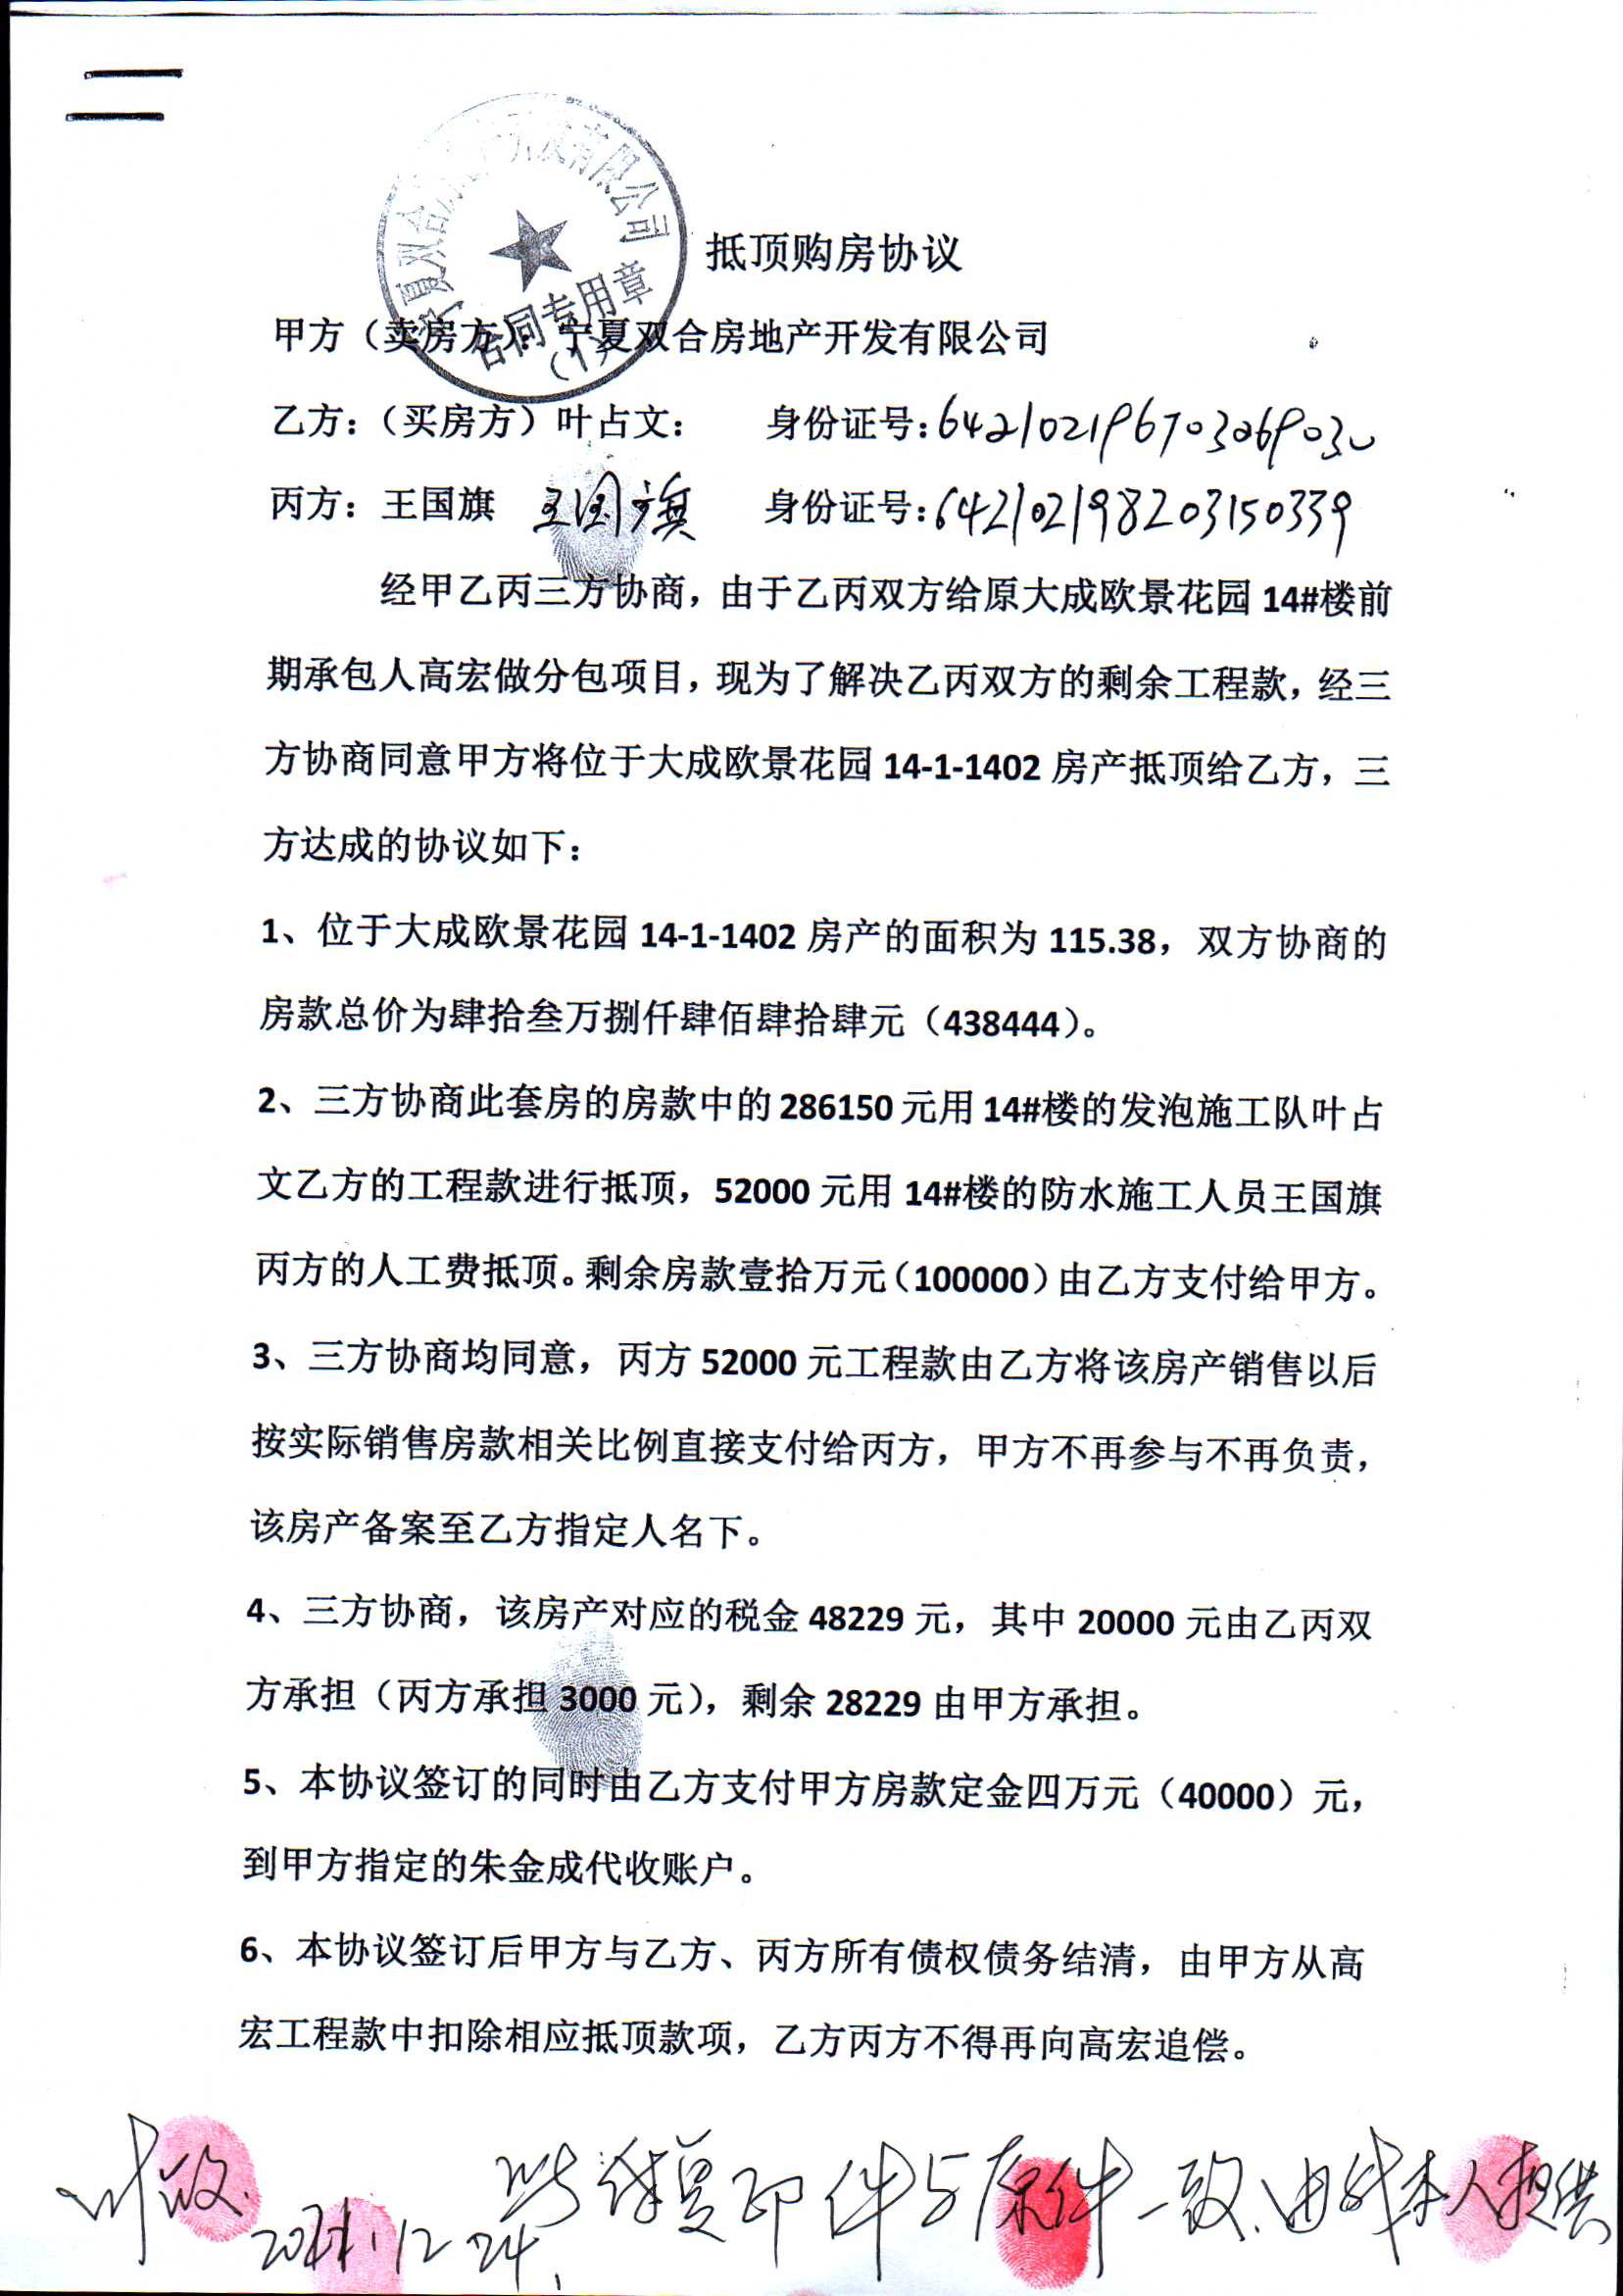 二
宁夏双合房地产开发有限公司
合同专用章
(1)
抵顶购房协议
甲方（卖房方）：宁夏双合房地产开发有限公司
乙方：（买房方）叶占文： 身份证号：
丙方：王国旗 王国旗 身份证号：642102198203150339
经甲乙丙三方协商，由于乙丙双方给原大成欧景花园 14#楼前
期承包人高宏做分包项目，现为了解决乙丙双方的剩余工程款，经三
方协商同意甲方将位于大成欧景花园 14-1-1402 房产抵顶给乙方，三
方达成的协议如下：
1、位于大成欧景花园 14-1-1402 房产的面积为 115.38，双方协商的
房款总价为肆拾叁万捌仟肆佰肆拾肆元（438444）。
2、三方协商此套房的房款中的 286150 元用 14#楼的发泡施工队叶占
文乙方的工程款进行抵顶，52000 元用 14#楼的防水施工人员王国旗
丙方的人工费抵顶。剩余房款壹拾万元（100000）由乙方支付给甲方。
3、三方协商均同意，丙方 52000 元工程款由乙方将该房产销售以后
按实际销售房款相关比例直接支付给丙方，甲方不再参与不再负责，
该房产备案至乙方指定人名下。
4、三方协商，该房产对应的税金 48229 元，其中 20000 元由乙丙双
方承担（丙方承担 3000 元），剩余 28229 由甲方承担。
5、本协议签订的同时由乙方支付甲方房款定金四万元（40000）元，
到甲方指定的朱金成代收账户。
6、本协议签订后甲方与乙方、丙方所有债权债务结清，由甲方从高
宏工程款中扣除相应抵顶款项，乙方丙方不得再向高宏追偿。
复印件与原件一致.由 本人提供
12 24